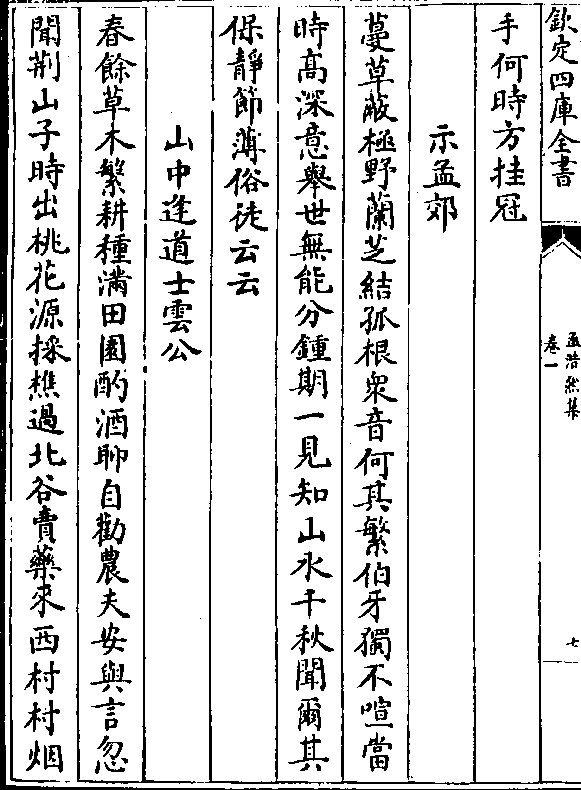 欽定四庫全書
孟浩然集
卷一
七
手何時方挂冠
示孟郊
蔓草蔽極野蘭芝結孤根衆音何其繁伯牙獨不喧當
時高深意舉世無能分鍾期一見知山水千秋聞爾其
保靜節薄俗徒云云
山中逢道士雲公
春餘草木繁耕種滿田園酌酒聊自勸農夫安與言忽
聞荆山子時出桃花源採樵過北谷賣藥來西村村烟